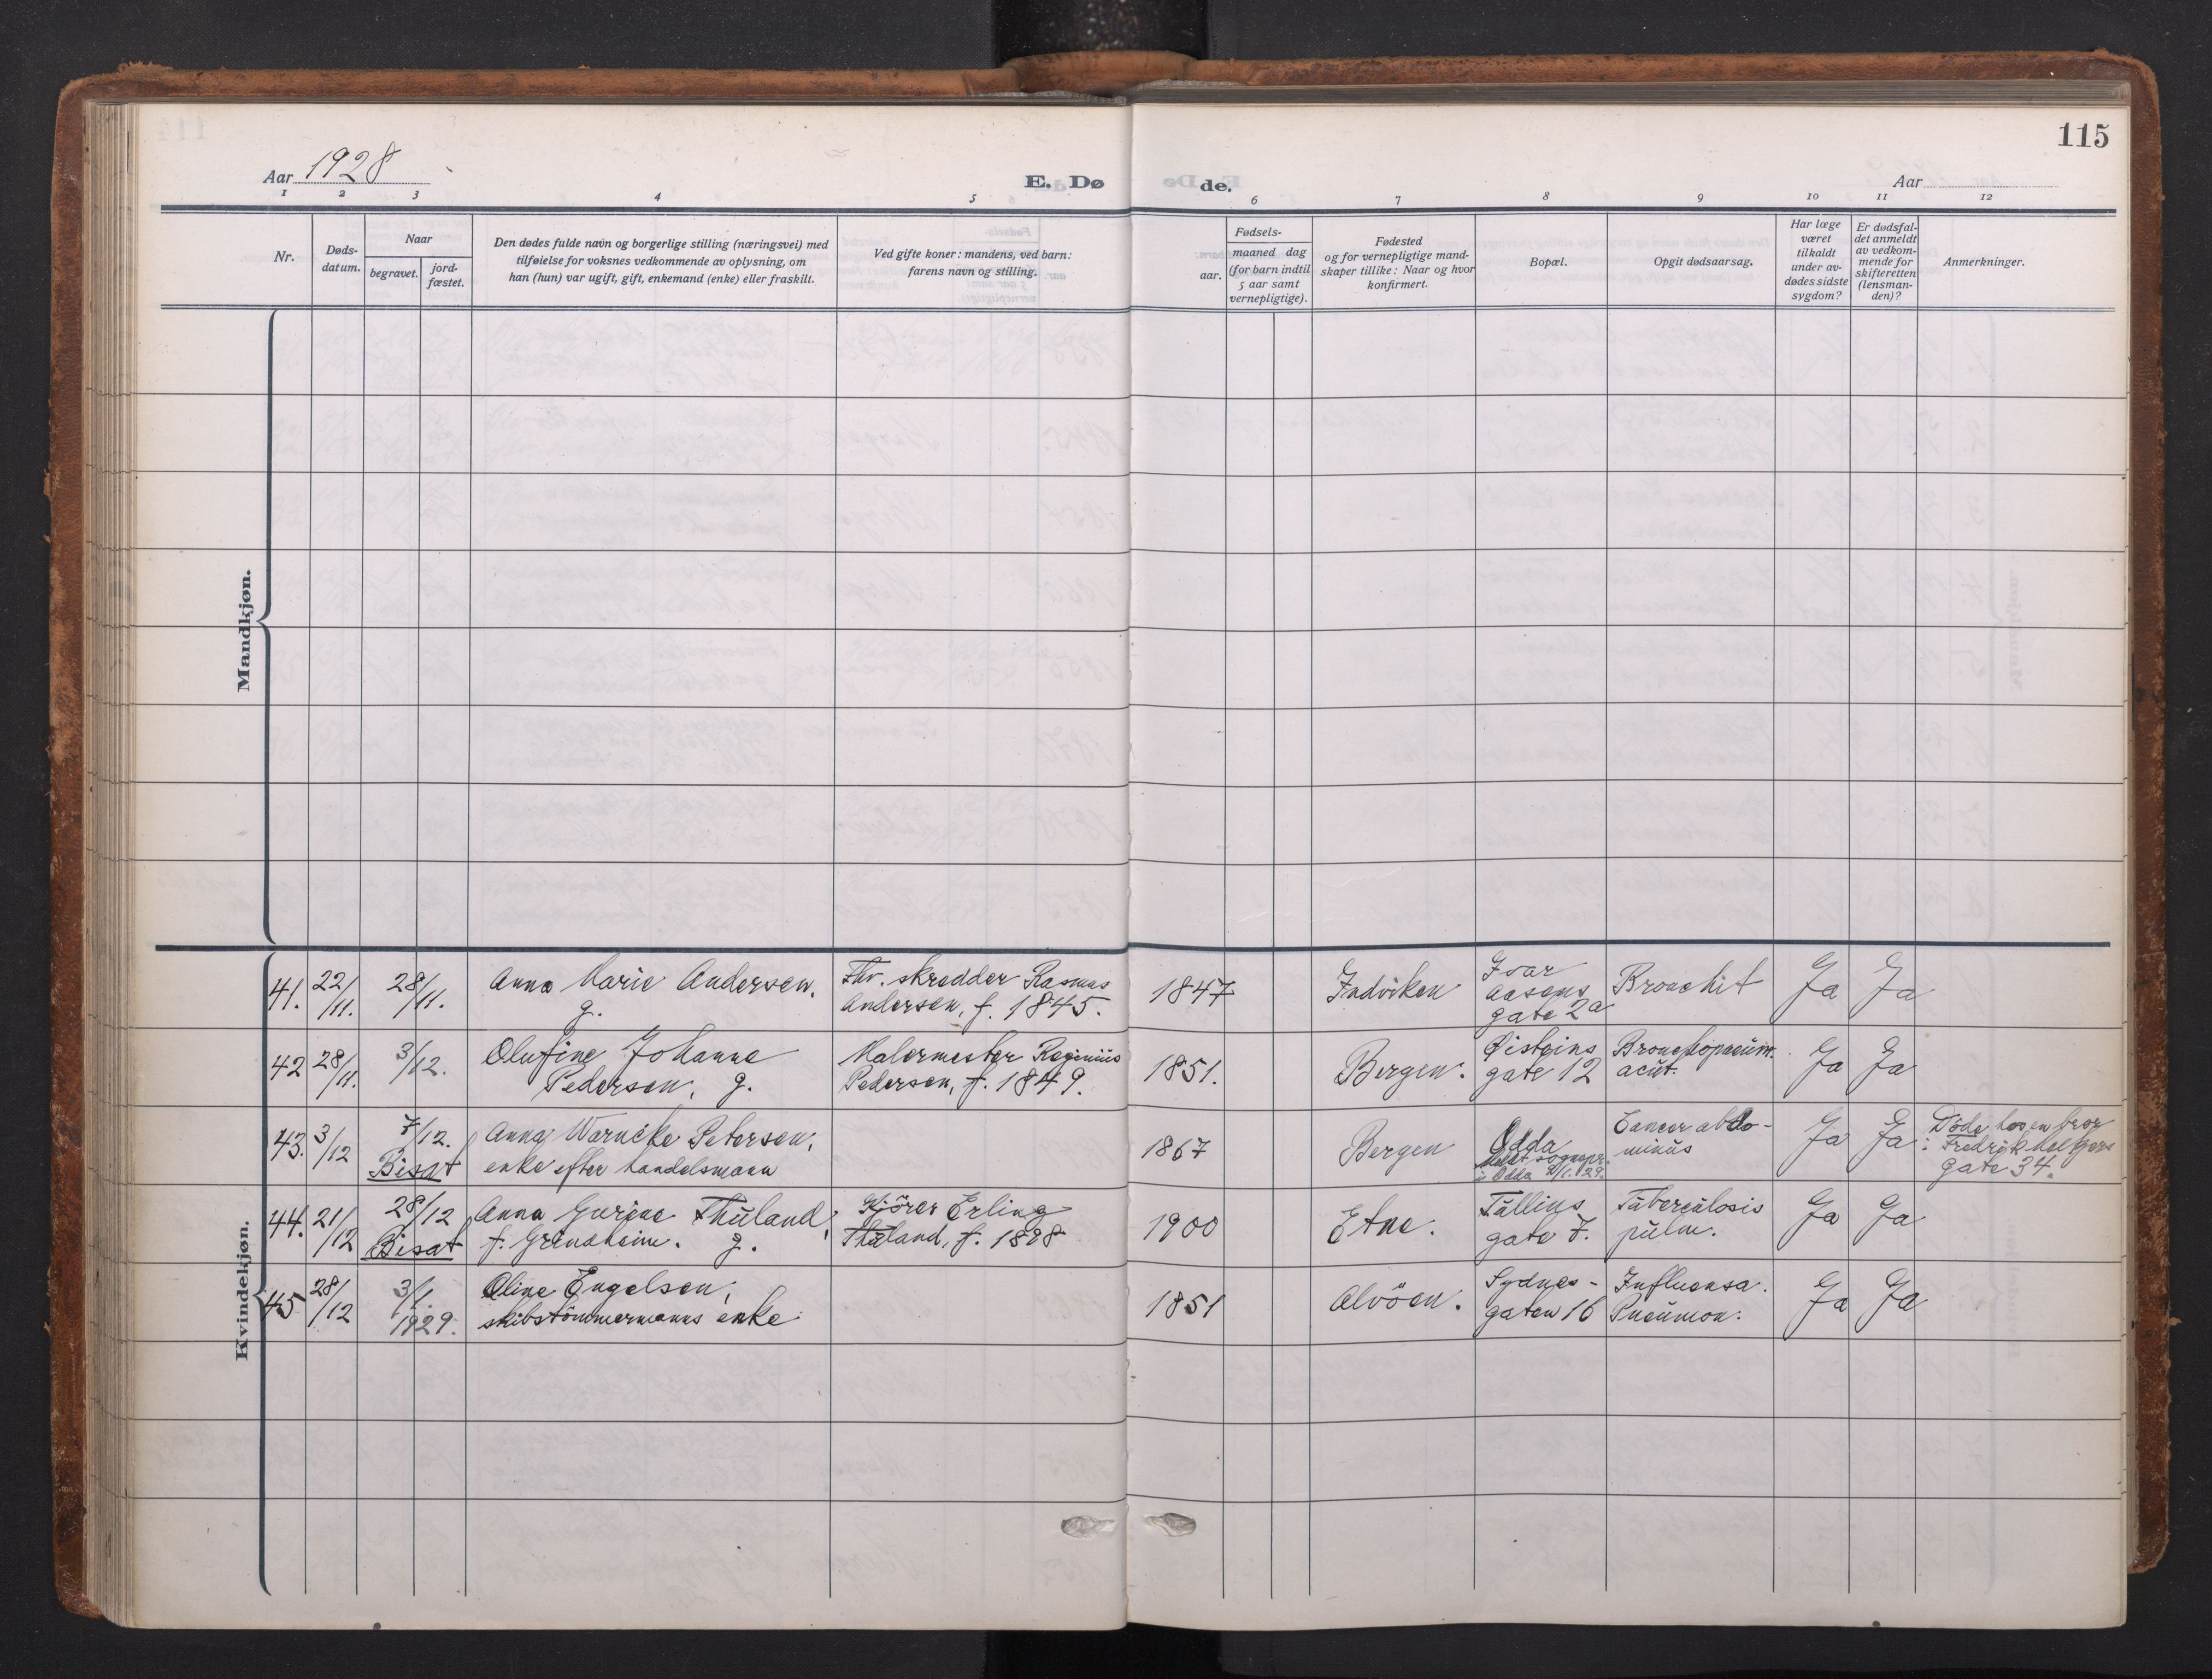 115
Aar 1928
E. Døde.
Aar
1 2 3 4 5 6 7 8 9 10 11 12
Nr.
Døds-
datum.
Naar
begravet.
jord-
fæstet.
Den dødes fulde navn og borgerlige stilling (næringsvei) med
tilføielse for voksnes vedkommende av oplysning, om
han (hun) var ugift, gift, enkemand (enke) eller fraskilt.
Ved gifte koner: mandens, ved barn:
farens navn og stilling.
aar.
Fødsels-
maaned dag
(for barn indtil
5 aar samt
vernepligtige).
Fødested
og for vernepligtige mand-
skaper tillike: Naar og hvor
konfirmert.
Bopæl.
Opgit dødsaarsag.
Har læge
været
tilkaldt
under av-
dødes sidste
sygdom?
Er dødsfal-
det anmeldt
av vedkom-
mende for
skifteretten
(lensman-
den)?
Anmerkninger.
Mandkjøn.
Kvindekjøn.
41. 22/11. 28/11.
Anna Marie Andersen.
g.
Fhv. skredder Rasmus
Andersen, f. 1845.
1847
Indviken
Ivar
Aasens
gate 2a
Bronchit
Ja Ja
42 28/11. 3/12.
Olufine Johanne
Pedersen, g.
Malermester Reginius
Pedersen, f. 1849.
1851.
Bergen.
Øisteins
gate 12
Bronchopneum.
acut.
Ja Ja
43. 3/12 7/12.
Bisat
Anna Warncke Petersen,
enke efter handelsmann
1867
Bergen
Odda
Meldt sognepr.
i Odda 2/1. 29.
Cancer abdo-
minis
Ja Ja
Döde hos en bror
i Fredrik Meltzers
gate 34.
44. 21/12 28/12
Bisat
Anna Gurine Thuland,
f. Grindheim. g.
Kjörer Erling
Thuland, f. 1898
1900
Etne.
Tullins
gate 7.
Tuberculosis
pulm.
Ja Ja
45 28/12 3/1.
1929.
Oline Engelsen,
skibstömmermanns enke
1851
Alvöen.
Sydnes-
gaten 16
Influensa.
Pneumon.
Ja Ja